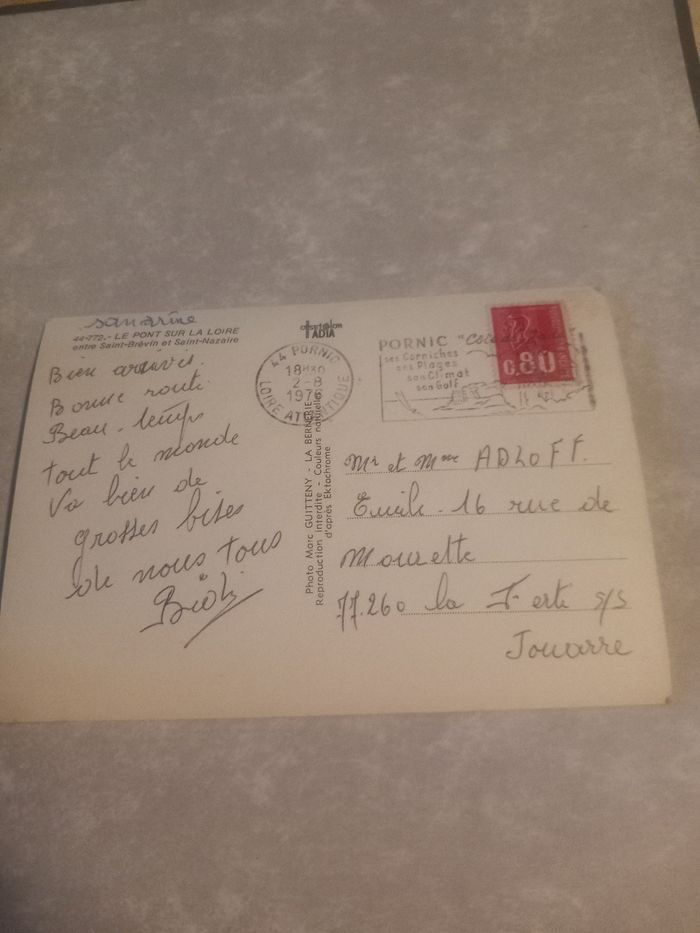 44-772.- LE PONT SUR LA LOIRE
entre Saint-Brévin et Saint-Nazaire
Bien arrivés.
Bonne route.
Beau-temps
tout le monde
Va bien de
grosses bises
de nous tous
44 PORNIC
18H30
2-8
1976
LOIRE ATLANTIQUE
PORNIC
ses Corniches
ses Plages
son Climat
son Golf
0,80
Photo Marc GUITTENY - LA BERNERIE
Reproduction interdite - Couleurs naturelles
d'après Ektachrome
Mr et Mme ADLOFF.
Emile - 16 rue de
Mourette
77.260 la Ferté s/s
Jouarre